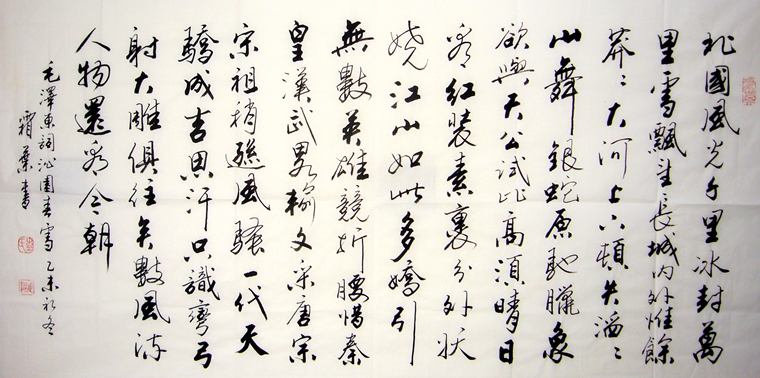 北國風光千里冰封萬
里雪飄望長城内外惟餘
莽〻大河上下頓失滔〻
山舞銀蛇原馳臘象
欲與天公試比高須晴日
看紅裝素裹分外妖
嬈江山如此多嬌引
無數英雄競折腰惜秦
皇漢武畧輸文采唐宗
宋祖稍遜風騷一代天
驕成吉思汗只識彎弓
射大雕俱往矣數風流
人物還看今朝
毛澤東詞沁園春雪乙未初冬
霜葉書